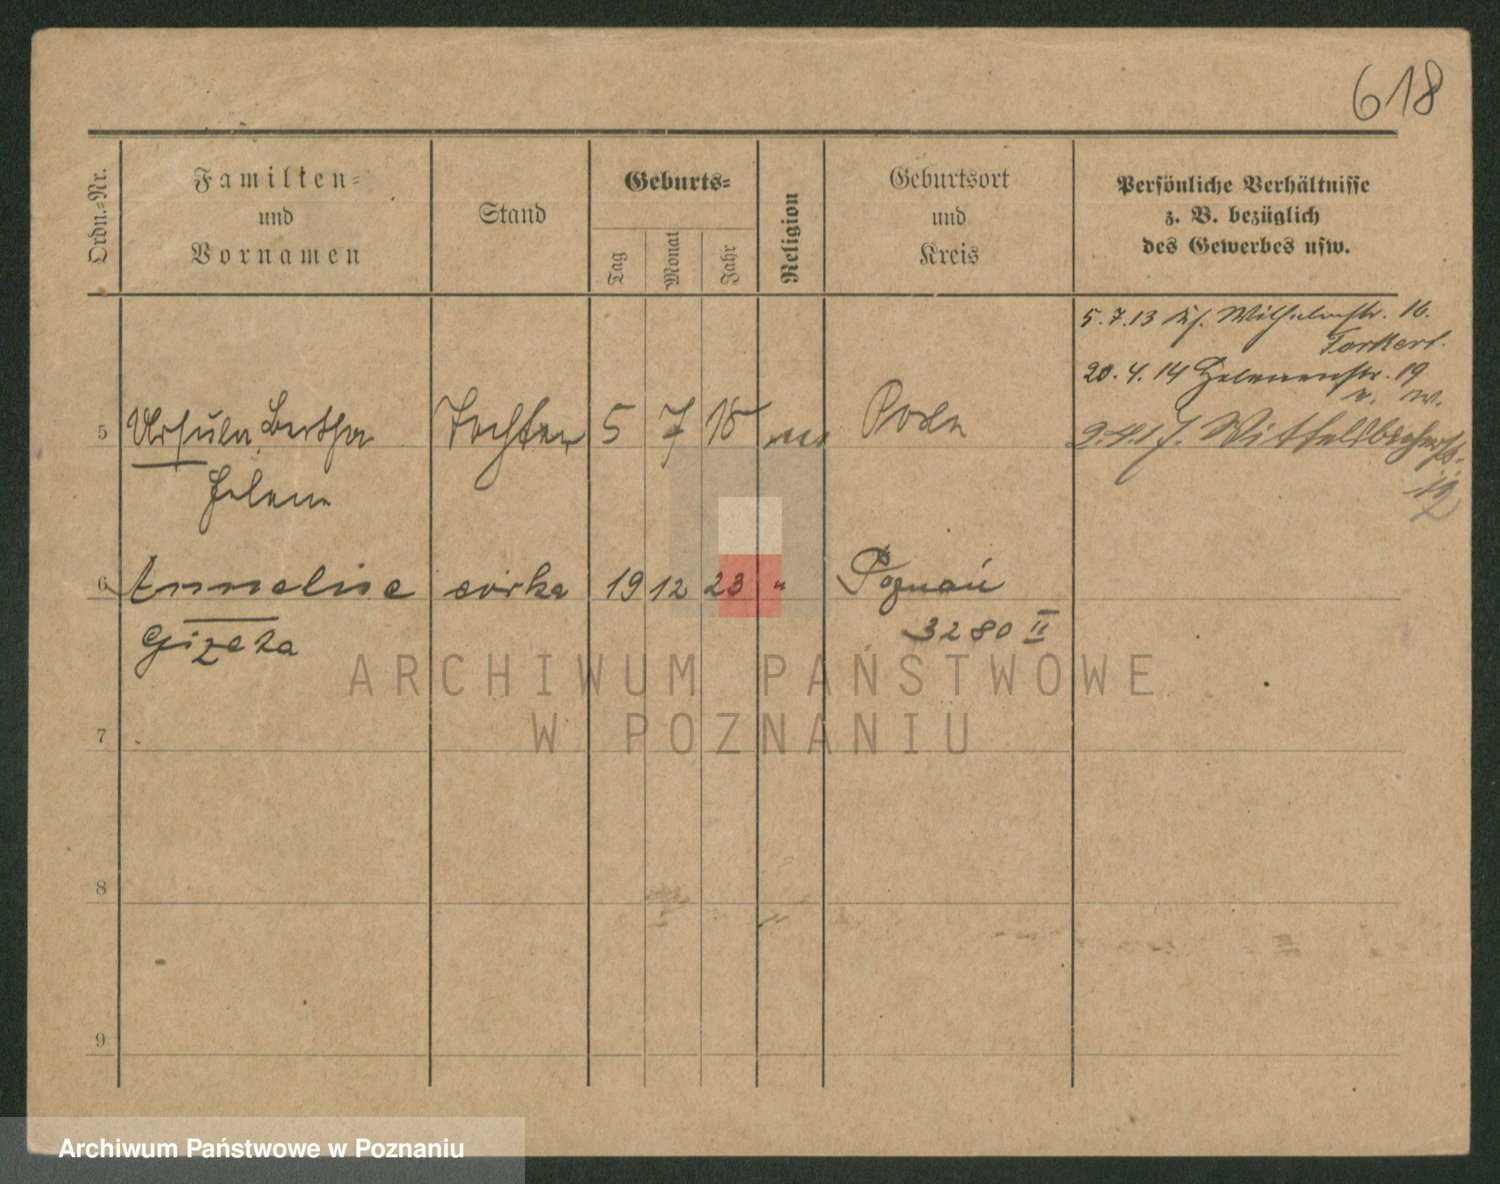 618
Ordn.-Nr.
Familien-
und
Vornamen
Stand
Geburts-
Tag
Monat
Jahr
Religion
Geburtsort
und
Kreis
Persönliche Verhältnisse
z. B. bezüglich
des Gewerbes usw.
5.7.13 Wilhelmstr. 16.
20.4.14 Helenenstr. 19
5 Ursula Bertha Tochter 5 7 18
Helene
6 Annelise córka 19 12 23 " Poznań
Gizela 3280 II
7
8
9
ARCHIWUM PAŃSTWOWE
W POZNANIU
Archiwum Państwowe w Poznaniu